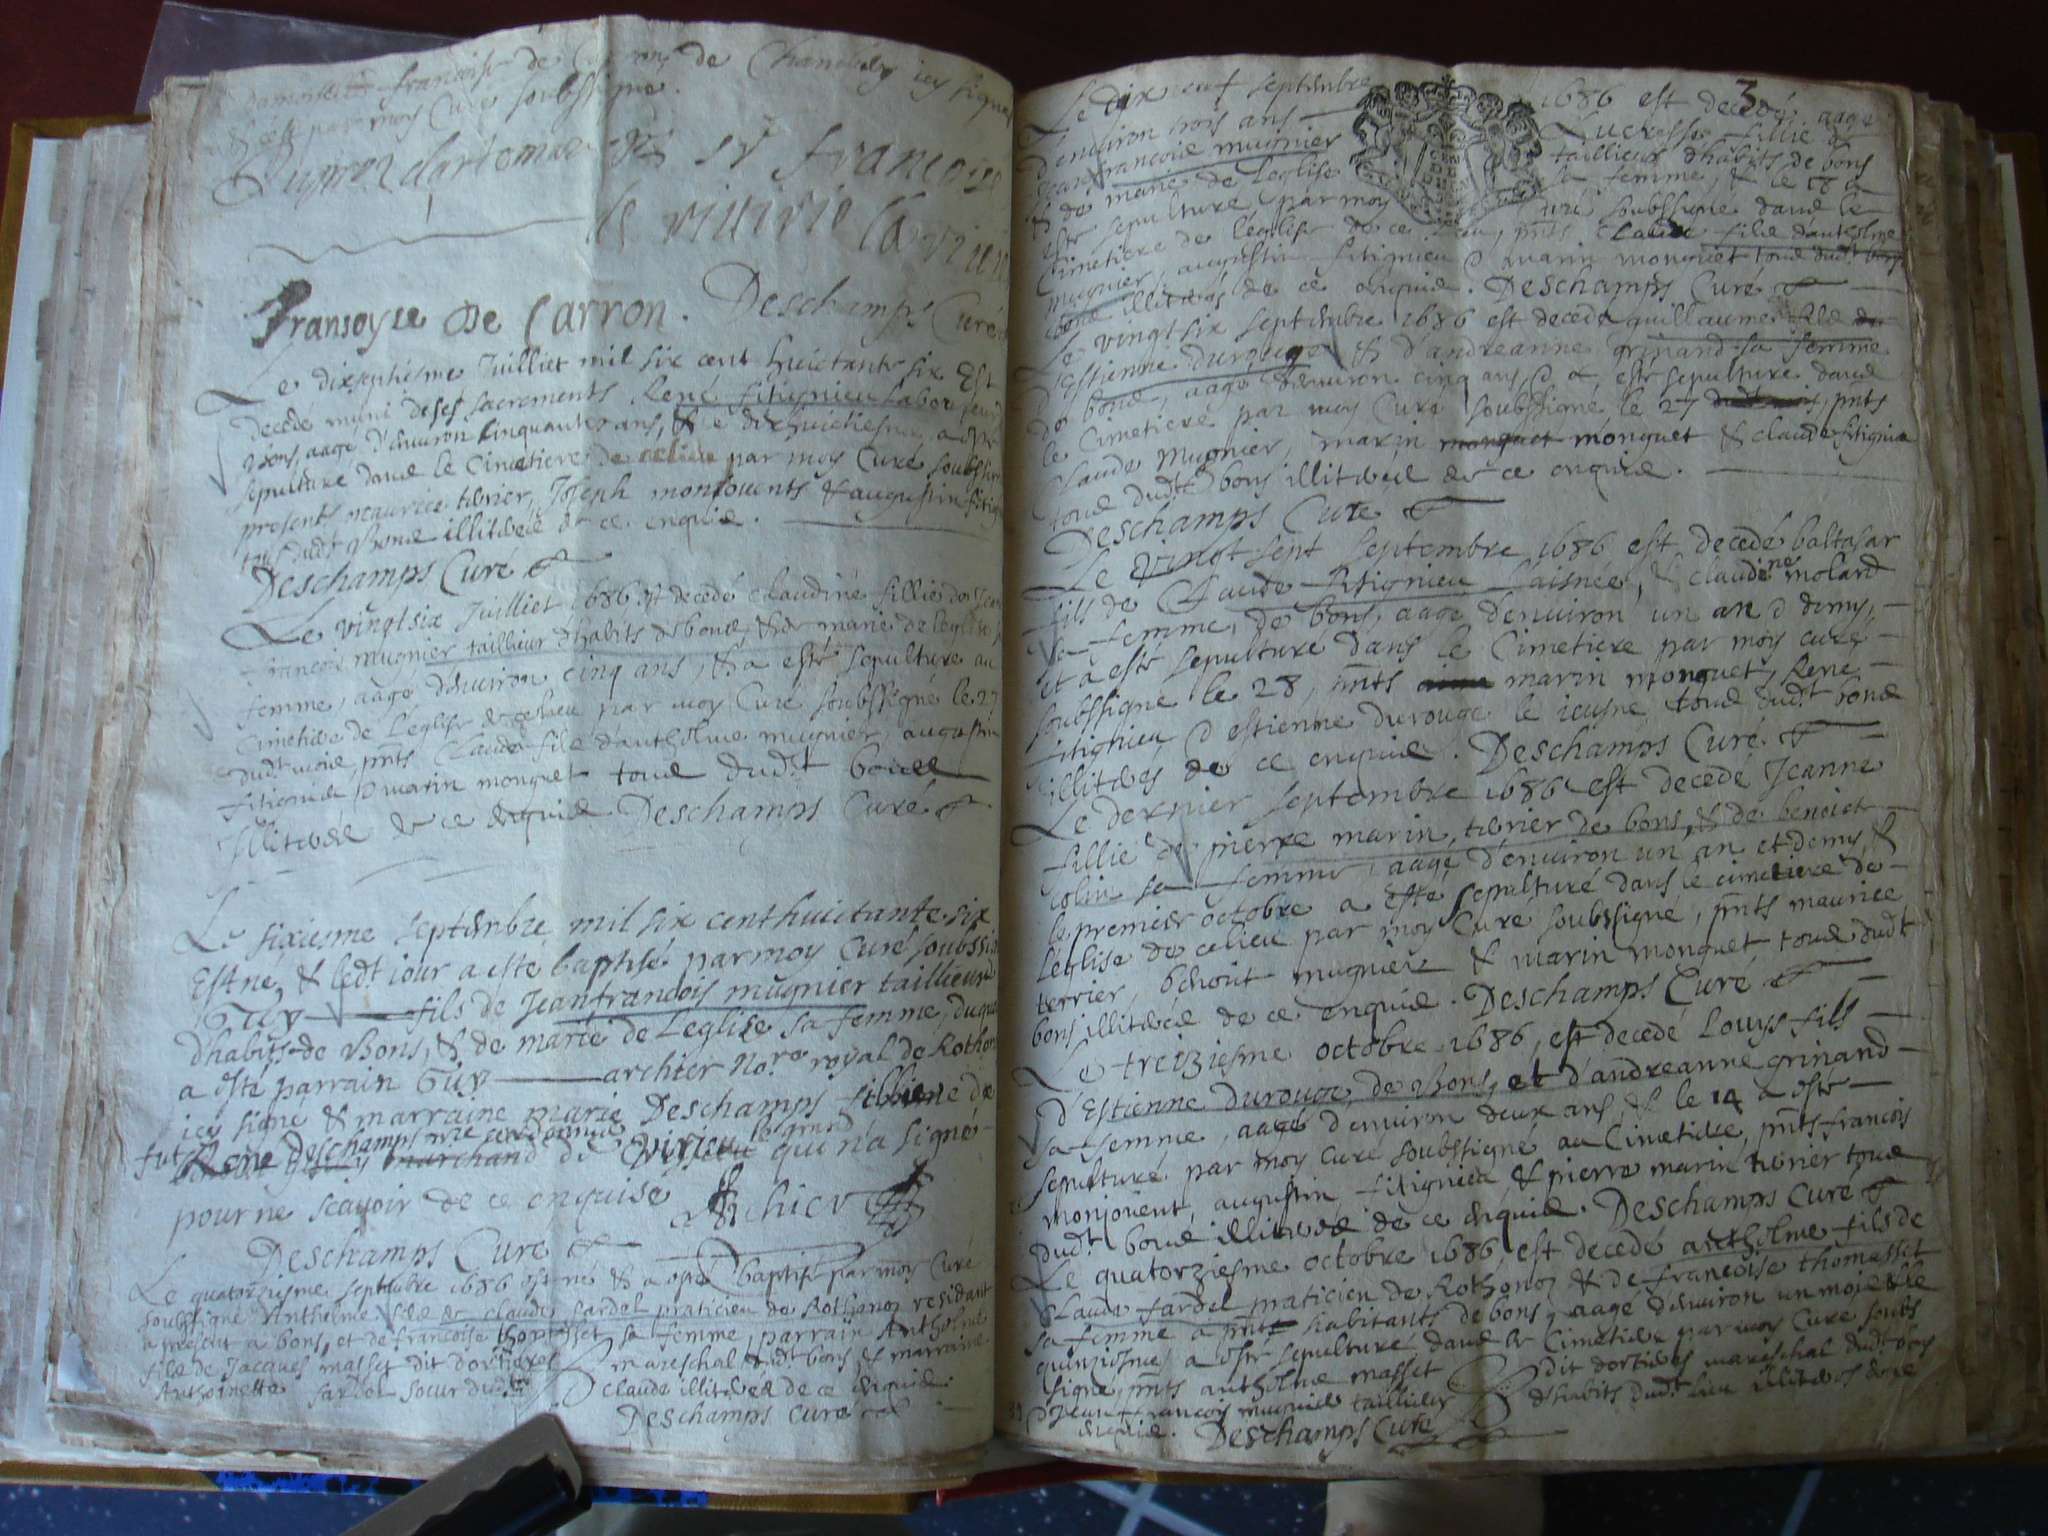 damoiselle francoise de Carron de Chambery icy signés
par moy Curé soubssigné.
francoise
Fransoyse De Carron. Deschamps Curé
Le dixseptiesme Juilliet mil six cent huictante six Est
decedé muni de ses sacrements René fitignieu labor
Bons, aagé d'environ cinquante ans, & le dixhuictiesme a esté
sepulturé dans le Cimetiere de ce lieu par moy Curé soubssigné
presents maurice terrier, Joseph monjouvents & augustin fitig
tous dudt Bons illiteréé de ce enquis.
Deschamps Curé
Le vingt six Juilliet 1686 est decedé Claudine fillie de Jean
francois mugnier taillieur d'habits de bons, & de marie de leglise
femme, aagé d'environ cinq ans, & a esté sepulturé au
Cimetiere de l'église de ce lieu par moy Curé soubssigné le 27
dudt mois, pnts Claude fils d'antholme mugnier, augustin
fitignieu & marin monguet tous dudt bons
Illiteréé de ce enquis Deschamps Curé
Le sixiesme septembre mil six cent huictante six
Est né, & ledt iour a esté baptisé par moy Curé soubssi
Guy fils de Jean francois mugnier taillieur
d'habits de Bons, & de marie de Leglise sa femme, duquel
a esté parrain Guy archier Nore royal de Rothon
icy signé & marraine marie Deschamps fillie de
fut René deschamps de Virieu le grand qui n'a signé
pour ne scavoir de ce enquise Archier
Deschamps Curé
Le quatorziesme septembre 1686 est né & a esté baptisé par moy Curé
soubssigné Anthelme fils de claude fardel praticien de Rothonoz residant
a present a bons, et de francoise thomasset sa femme, parrain Antholme
fils de Jacques masset dit dortieres mareschal dudt bons, & marraine
Anthoinette fardel soeur dudt claude illiteréé de ce enquis.
Deschamps curé
3
Le dix neuf septembre 1686 est decedé, aagé
d'environ trois ans Lucresse fillie de
Jean francois mugnier taillieur d'habits de bons
& de marie de Leglise sa femme, & le
esté sepulturé par moy Curé soubssigné dans le
Cimetiere de l'église de ce lieu, pnts Claude fils d'antholme
mugnier, augustin fitignieu & marin monguet tous dudt bons
illiterés de ce enquis. Deschamps Curé
Le vingt six septembre 1686 est decedé guillaume fils de
Estienne durouge & d'andreanne grinand sa femme
de bons, aagé d'environ cinq ans, & a esté sepulturé dans
le Cimetiere par moy Curé soubssigné le 27 pnts
Claude mugnier, marin monguet & claude fitignieu
tous dudt bons illiteréé de ce enquis.
Deschamps Curé
Le vingt sept septembre 1686 est decedé baltasar
fils de Claude fitignieu l'aisnée, & claudine molard
sa femme, de bons, aagé d'environ un an & demy,
et a esté sepulturé dans le Cimetiere par moy curé
soubssigné le 28, pnts marin monguet, René
fitignieu & estienne durouge le ieusne tous dudt bons
illiterés de ce enquis. Deschamps Curé
Le dernier septembre 1686 est decedé Jeanne
fillie de pierre marin, terrier de bons, & de benoicte
colin sa femme, aagé d'environ un an et demy, &
le premier octobre a esté sepulturé dans le cimetiere de
l'église de ce lieu par moy Curé soubssigné, pnts maurice
terrier, benoit mugnier & marin monguet tous dudt
bons illiteréé de ce enquis. Deschamps Curé
Le treiziesme octobre 1686, est decedé Louys fils
d'Estienne durouge, de Bons, et d'andreanne grinand
sa femme, aagé d'environ deux ans, & le 14 a esté
sepulturé par moy curé soubssigné au Cimetiere, pnts francois
monjouent, augustin fitignieu & pierre marin terrier tous
dudt bons illiteréé de ce enquis. Deschamps Curé
Le quatorziesme octobre 1686, est decedé antholme fils de
Claude fardel praticien de Rothonoz & de francoise thomasset
sa femme a pnts habitants de bons, aagé d'environ un mois & le
quinziesme a esté sepulturé dans le Cimetiere par moy Curé soubs
signé, pnts antholme masset dit dortieres mareschal dudt bons
& Jean francois mugnier taillieur d'habits dudt lieu illiterés de ce
enquis. Deschamps Curé